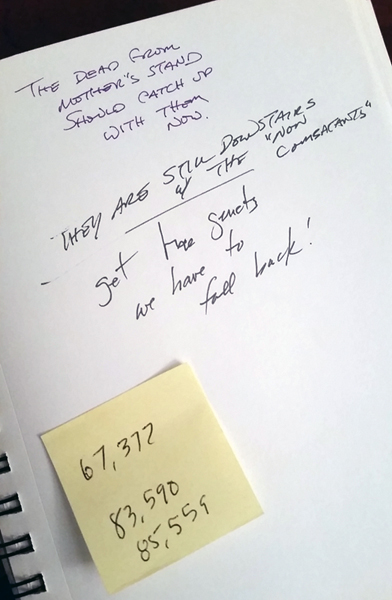 THE DEAD FROM
MOTHER'S STAND
SHOULD CATCH UP
WITH THEM
NOW.
THEY ARE STILL DOWNSTAIRS
w/ THE "NON
COMBATANTS"
get
we have to
fall back!
67,372
83,590
85,559